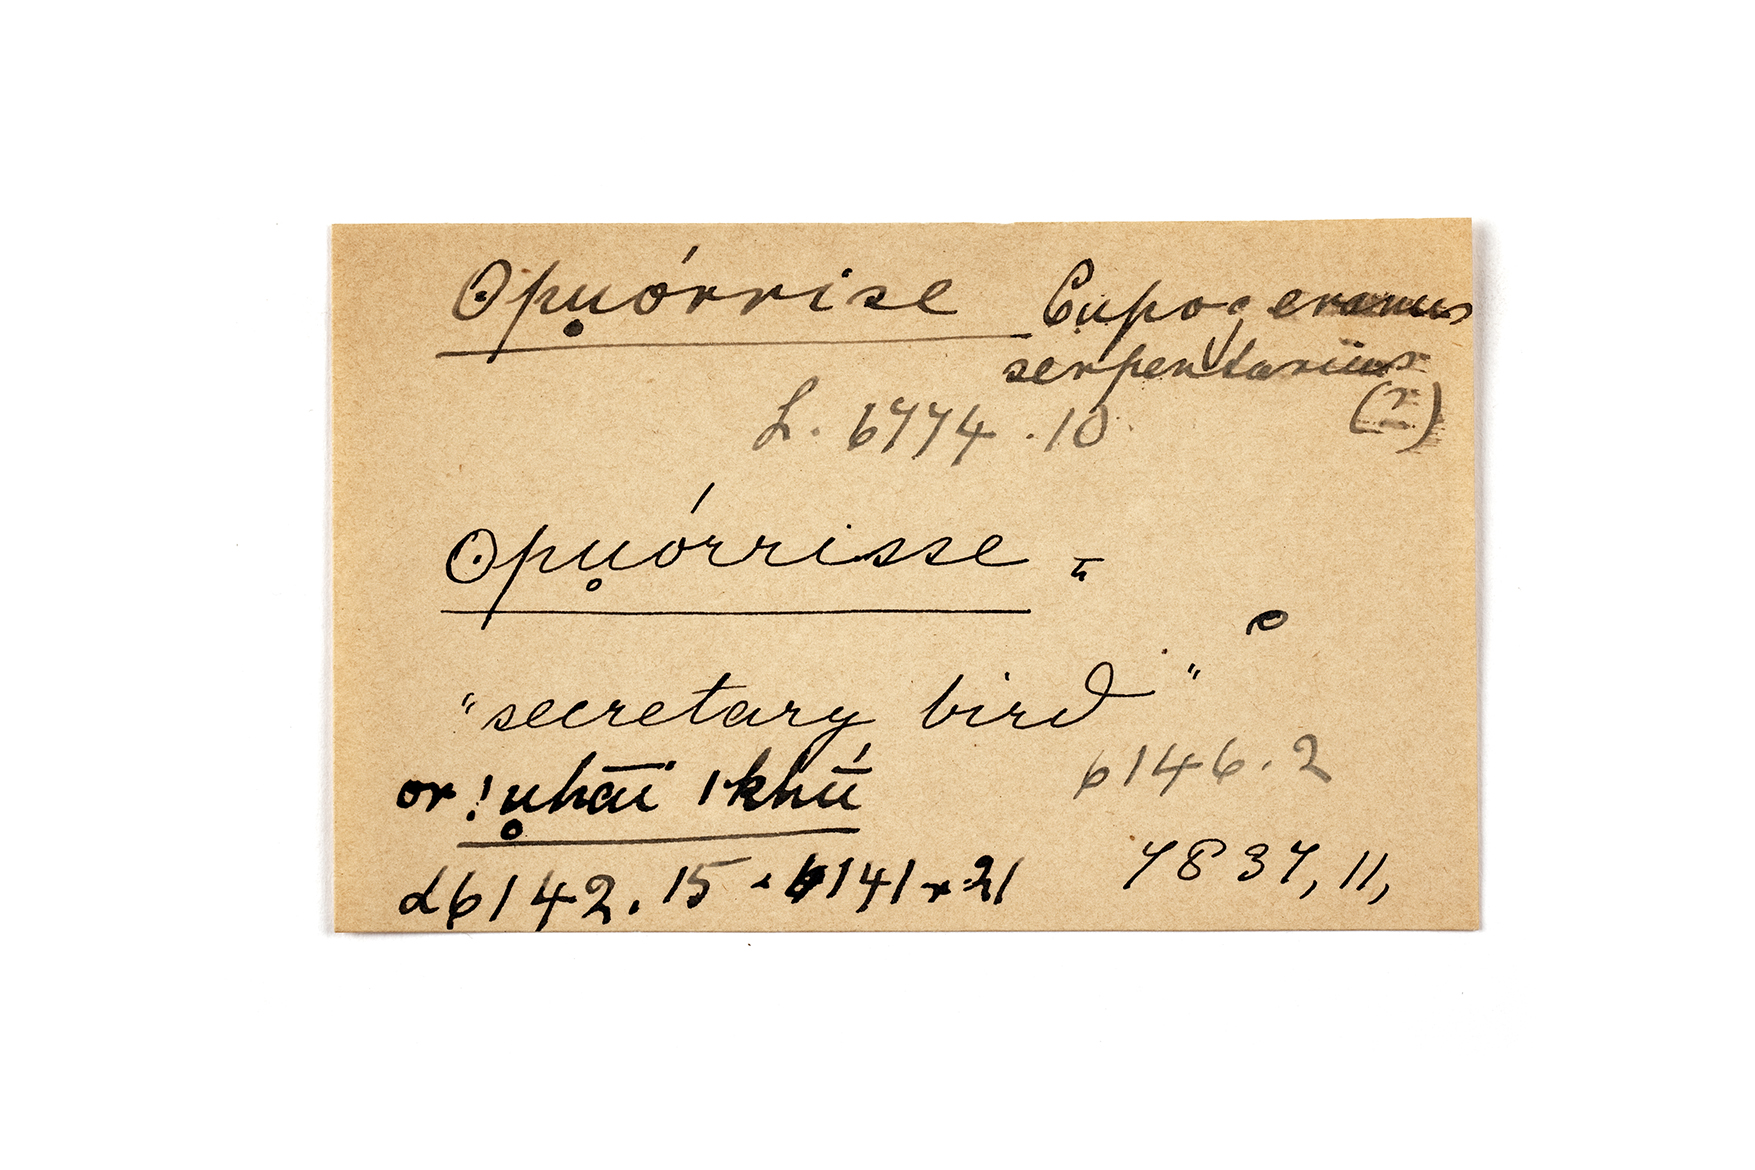 ʘpu̥órrise Gypogeranus
serpentarius
(?)
L. 6774.10
ʘpu̥órrisse "
"secretary bird"
or !u̥hāi ǀkhū́
6146.2
L 6142.15 - 6141 x 21 7837, 11,